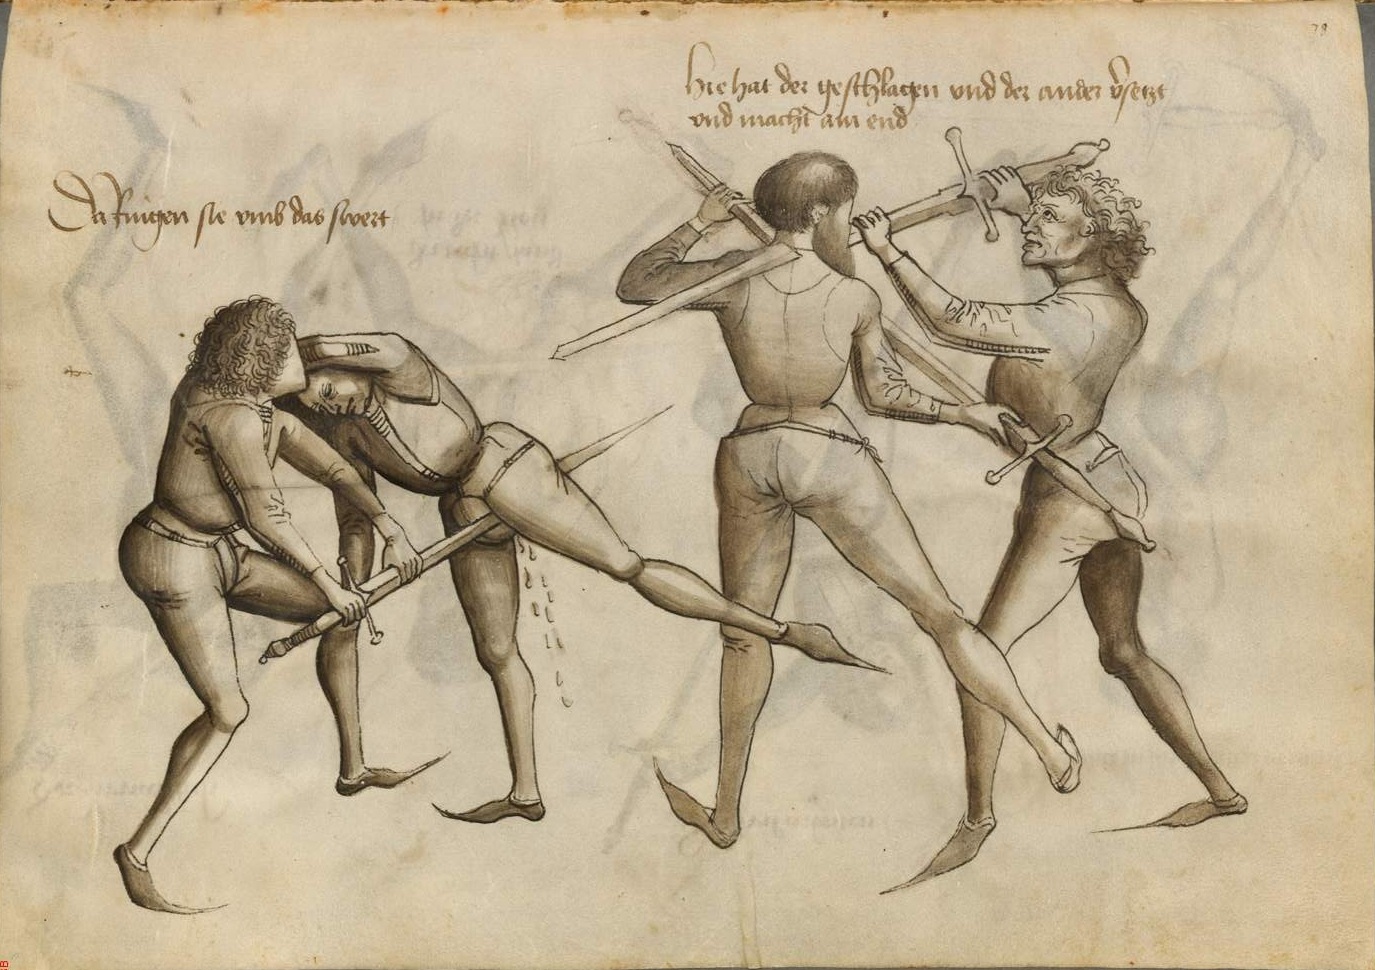 Da Ringen sie vmb das swert
Hie hat der geschlagen vnd der ander v̄setzt
vnd macht am end
78